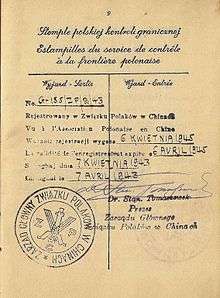 9
Stemple polskiej kontroli granicznej
Estampilles du service de contrôle
à la frontière polonaise
Wyjazd - Sortie
Wjazd - Entrée
No G-155/ZP8/43
Rejestrowany w Związku Polaków w Chinach
Vu à l'Association Polonaise en Chine
Ważność rejestracji wygasa 6 KWIETNIA 1945
La validité de l'enregistrement expire 6 AVRIL 1945
dnia 7 KWIETNIA 1943
7 AVRIL 1943
Dr. Stan. Tomaszewski
Prezes
Zarządu Głównego
Związku Polaków w Chinach
ZARZĄD GŁÓWNY ZWIĄZKU POLAKÓW W CHINACH